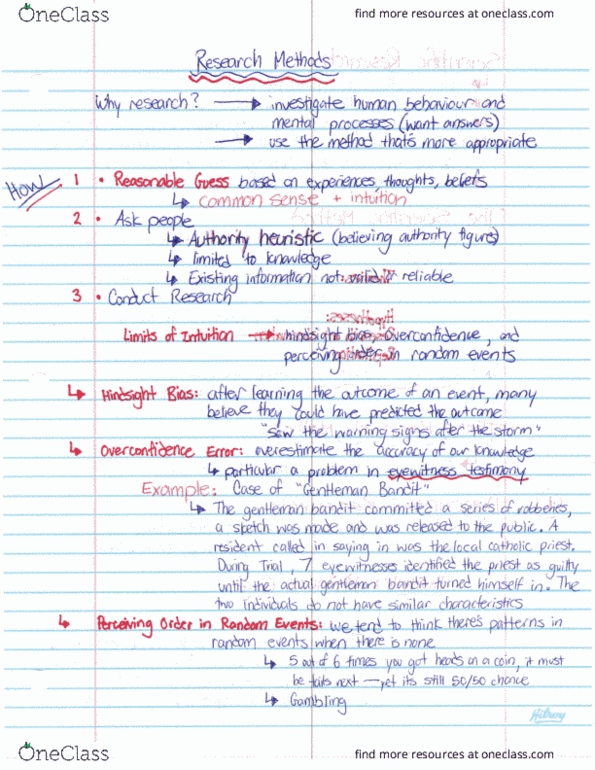 OneClass
find more resources at oneclass.com
Research Methods
Why research? → investigate human behaviour and
mental processes (want answers)
→ use the method that's more appropriate
How
1 • Reasonable Guess based on experiences, thoughts, beliefs
↳ common sense + intuition
2 • Ask people
↳ Authority heuristic (believing authority figures)
↳ limited to knowledge
↳ Existing information not valid or reliable
3 • Conduct Research
Limits of Intuition → hindsight bias, overconfidence, and
perceiving order in random events
↳ Hindsight Bias: after learning the outcome of an event, many
believe they could have predicted the outcome
"saw the warning signs after the storm"
↳ Overconfidence Error: overestimate the accuracy of our knowledge
↳ particular a problem in eyewitness testimony
Example: Case of "Gentleman Bandit"
↳ The gentleman bandit committed a series of robberies,
a sketch was made and was released to the public. A
resident called in saying in was the local catholic priest.
During Trial, 7 eyewitnesses identified the priest as guilty
until the actual gentleman bandit turned himself in. The
two individuals do not have similar characteristics
↳ Perceiving Order in Random Events: we tend to think there's patterns in
random events when there is none
↳ 5 out of 6 times you got heads on a coin, it must
be tails next — yet its still 50/50 chance
↳ Gambling
Hilroy
OneClass
find more resources at oneclass.com